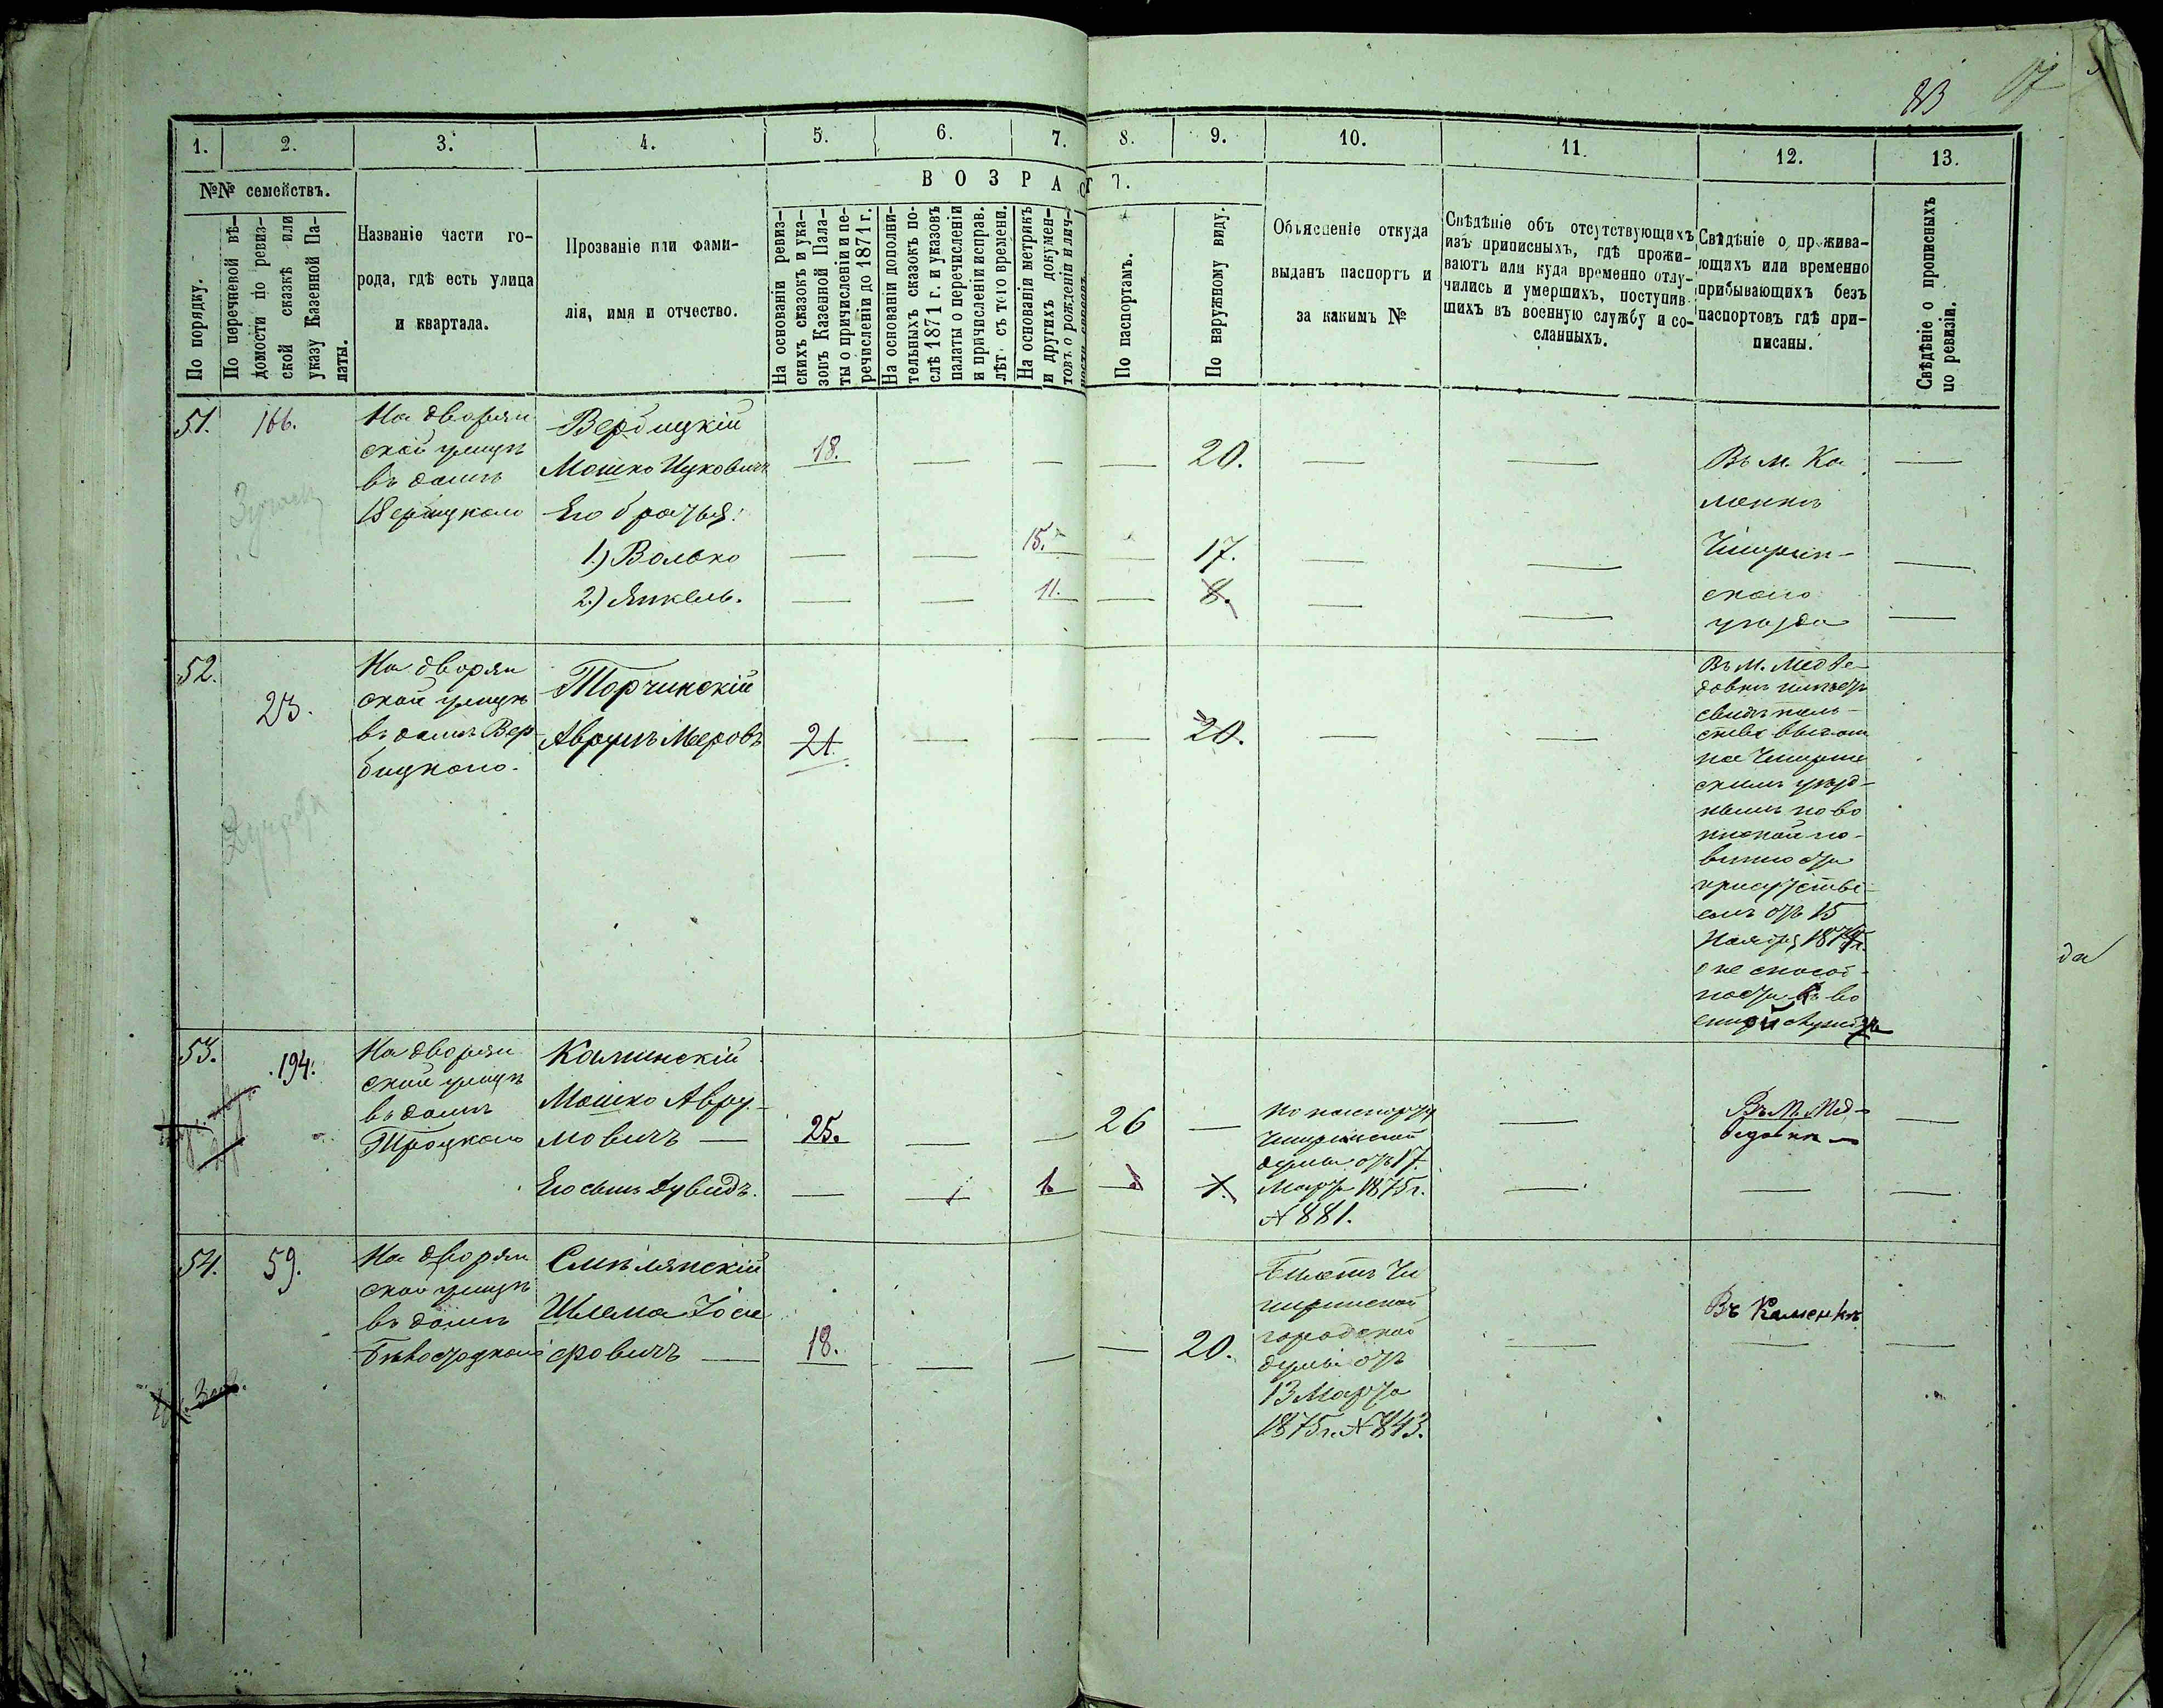 83
1.
2.
3.
4.
5.
6.
7.
8.
9.
10.
11.
12.
13.
№№ семействъ.
По порядку.
По перечневой вѣ-
домости по ревиз-
ской сказкѣ или
указу Казенной Па-
латы.
Названіе части го-
рода, гдѣ есть улица
и квартала.
Прозваніе или фами-
лія, имя и отчество.
ВОЗРАСТ
На основаніи ревиз-
скихъ сказокъ и ука-
зовъ Казенной Пала-
ты о причисленіи и пе-
речисленіи до 1871 г.
На основаніи дополни-
тельныхъ сказокъ по-
слѣ 1871 г. и указовъ
палаты о перечисленіи
и причисленіи исправ.
лѣт. съ того времени.
На основаніи метрикъ
и другихъ докумен-
товъ о рожденіи и лич-
По паспортамъ.
По наружному виду.
Объясненіе откуда
выданъ паспортъ и
за какимъ №
Свѣдѣніе объ отсутствующихъ
изъ приписныхъ, гдѣ прожи-
ваютъ или куда временно отлу-
чились и умершихъ, поступив-
шихъ въ военную службу и со-
сланныхъ.
Свѣдѣніе о прожива-
ющихъ или временно
прибывающихъ безъ
паспортовъ гдѣ при-
писаны.
Свѣдѣніе о прописныхъ
по ревизіи.
51.
166.
На дворян
ской улицѣ
въ домѣ
Вербицкаго
Вербицкій
Мошко Ицковичъ
Его братья:
1.) Волько
2.) Янкель.
18.
20.
15.
17.
11.
8.
Въ м. Ка
менкѣ
Чигрин-
скаго
уѣзда
52.
23.
На дворян
ской улицѣ
въ домѣ Вер-
бицкаго.
Торчинскій
Аврумъ Мееровъ
21.
20.
Въ М. Медве-
довкѣ имѣетъ
свидѣтель-
ство выдан
ное Чигрин
скимъ уѣзд-
нымъ по во
инской по-
винности
присутстві-
емъ отъ 15
Ноября 1874 г.
о не способ-
ности къ во
енной службѣ
53.
194.
На дворян
ской улицѣ
въ домѣ
Троцкаго
Калинскій
Мошко Авру-
мовичъ —
Его сынъ Дувидъ.
25.
26
1.
1.
По паспорту
Чигринской
думы отъ 17.
Марта 1875 г.
№ 881.
Въ М. Мед-
ведовкѣ —
54.
59.
На дворян
ской улицѣ
въ домѣ
Бѣлоцродкого
Смѣлянскій
Шлема Іосе
фовичъ —
18.
20.
Билетъ Чи
гиринской
городской
думы отъ
13 Марта
1875 г. № 843.
Въ Каменкѣ
да